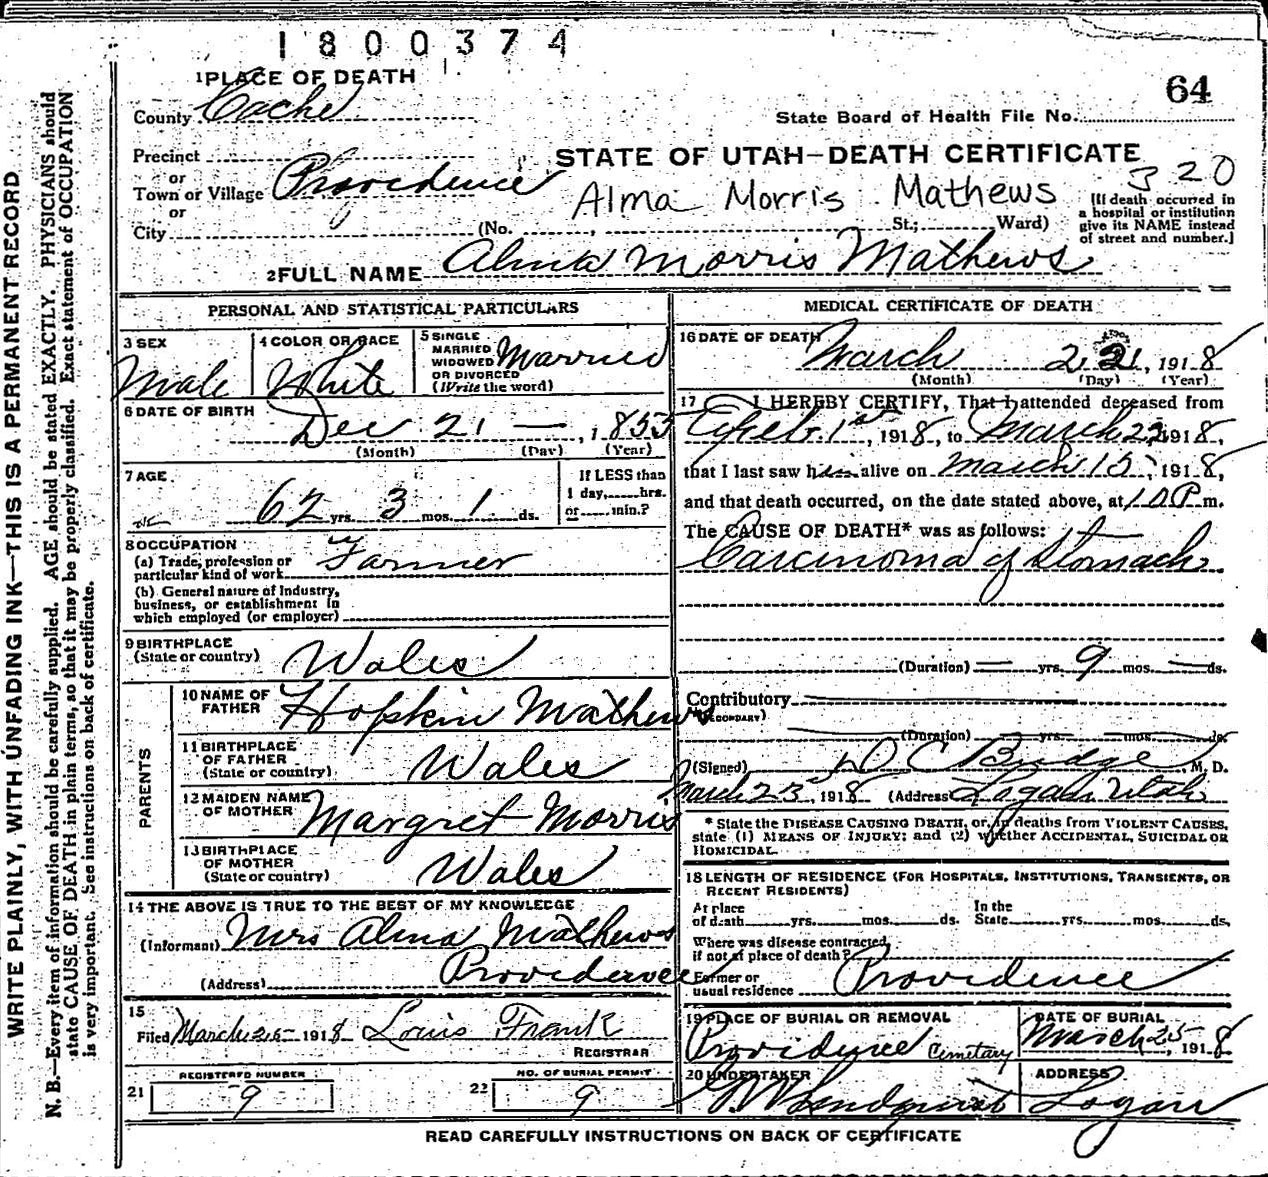 1800374
1 PLACE OF DEATH
64
County Cache
State Board of Health File No.
Precinct
or
STATE OF UTAH—DEATH CERTIFICATE
Town or Village Providence
320
Alma Morris Mathews
or
City (No. , St.; Ward)
[If death occurred in
a hospital or institution
give its NAME instead
of street and number.]
2 FULL NAME Alma Morris Mathews
PERSONAL AND STATISTICAL PARTICULARS
3 SEX Male
4 COLOR OR RACE White
5 SINGLE
MARRIED
WIDOWED
OR DIVORCED
(Write the word)
Married
6 DATE OF BIRTH
Dec 21 — , 1855
(Month) (Day) (Year)
7 AGE
62 yrs. 3 mos. 1 ds.
IF LESS than
1 day, hrs.
or min.?
8 OCCUPATION
(a) Trade, profession or
particular kind of work Farmer
(b) General nature of Industry,
business, or establishment in
which employed (or employer)
9 BIRTHPLACE
(State or country) Wales
PARENTS
10 NAME OF
FATHER Hopkin Mathews
11 BIRTHPLACE
OF FATHER
(State or country) Wales
12 MAIDEN NAME
OF MOTHER Margret Morris
13 BIRTHPLACE
OF MOTHER
(State or country) Wales
14 THE ABOVE IS TRUE TO THE BEST OF MY KNOWLEDGE
(Informant) Mrs Alma Mathews
(Address) Providence
15
Filed March 25 1918 Louis Frank
REGISTRAR
REGISTERED NUMBER
21 9
NO. OF BURIAL PERMIT
22 9
MEDICAL CERTIFICATE OF DEATH
16 DATE OF DEATH
March 22, 1918
(Month) (Day) (Year)
17 I HEREBY CERTIFY, That I attended deceased from
1st, 1918, to March 22 1918,
that I last saw him alive on March 15, 1918,
and that death occurred, on the date stated above, at 10 P.m.
The CAUSE OF DEATH* was as follows:
Carcinoma of Stomach
(Duration) — yrs. 9 mos. — ds.
Contributory
(SECONDARY)
(Duration) yrs. mos. ds.
(Signed) D C Budge, M. D.
March 25, 1918 (Address Logan Utah
* State the DISEASE CAUSING DEATH, or, in deaths from VIOLENT CAUSES,
state (1) MEANS OF INJURY; and (2) whether ACCIDENTAL, SUICIDAL OR
HOMICIDAL.
18 LENGTH OF RESIDENCE (FOR HOSPITALS, INSTITUTIONS, TRANSIENTS, OR
RECENT RESIDENTS)
At place
of death yrs. mos. ds.
In the
State yrs. mos. ds.
Where was disease contracted,
if not at place of death?
Former or
usual residence Providence
19 PLACE OF BURIAL OR REMOVAL
Providence Cemetary
DATE OF BURIAL
March 25, 1918
20 UNDERTAKER
Lindquist
ADDRESS
Logan
READ CAREFULLY INSTRUCTIONS ON BACK OF CERTIFICATE
WRITE PLAINLY, WITH UNFADING INK—THIS IS A PERMANENT RECORD
N. B.—Every item of information should be carefully supplied. AGE should be stated EXACTLY. PHYSICIANS should
state CAUSE OF DEATH in plain terms, so that it may be properly classified. Exact statement of OCCUPATION
is very important. See instructions on back of certificate.